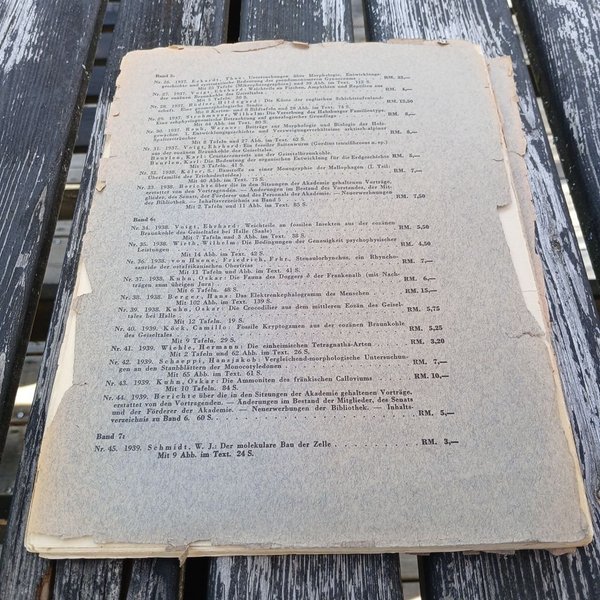 Band 5.
Nr. 26. 1937. Erhardt,
geschichte und
Mit 25 Tafeln
Nr. 27. 1937. Voigt, Ehrhard: Weichteile an Fischen, Amphibien und Reptilien aus
der eozänen
Mit
Nr. 28. 1937. Rüger, Hildegard: Die Küste der
Nr. 29. 1937. Strohmayer, Wilhelm: Die Vererbung des Habsburger Familientypus.
auf genealogischer Grundlage
Nr. 30. 1937. Werner: Beiträge zur Morphologie und Biologie der
I. Entwicklungsgeschichte und Verzweigungsverhältnisse arktisch-alpiner
Mit 8 Tafeln und 27 Abb. im Text. 62 S.
Nr. 31. 1937. Voigt, Ehrhard: Ein fossiler Saitenwurm
aus der eozänen des Geiseltales.
Beurlen, Karl: Crustaceenreste aus der Geiseltalbraunkohle.
Beurlen, Karl: Die Bedeutung der organischen Entwicklung für die Erdgeschichte RM. 8,—
Nr. 32. 1938. Kéler, S.: Baustoffe zu einer Monographie der Mallophagen (I. Teil:
Überfamilie der Trichodectoidea) RM. 7,—
Nr. 33. 1938. Berichte über die in den Sitzungen der Akademie gehaltenen Vorträge,
erstattet von den Vortragenden. — Änderungen im Bestand des Vorstandes, der Mit-
glieder, des Senats, der Förderer und des Personals der Akademie. — Neuerwerbungen
der Bibliothek. — Inhaltsverzeichnis zu Band 5 RM. 7,50
Mit 2 Tafeln und 11 Abb. im Text. 85 S.
Band 6:
Nr. 34. 1938. Voigt, Ehrhard: Weichteile an fossilen Insekten aus der eozänen
Braunkohle des Geiseltales bei Halle (Saale) RM. 5,50
Mit 7 Tafeln und 3 Abb. im Text. 38 S.
Nr. 35. 1938. Wirth, Wilhelm: Die Bedingungen der Genauigkeit psychophysischer
Leistungen RM. 4,50
Mit 14 Abb. im Text. 42 S.
Nr. 36. 1938. von Huene, Friedrich, Frhr.: Stenaulorhynchus, ein Rhyncho-
sauride der ostafrikanischen Obertrias RM. 7,—
Mit 11 Tafeln und Abb. im Text. 41 S.
Nr. 37. 1938. Kuhn, Oskar: Die Fauna des Doggers δ der Frankenalb (mit Nach-
trägen zum übrigen Jura) RM. 6,—
Mit 6 Tafeln. 48 S.
Nr. 38. 1938. Berger, Hans: Das Elektrenkephalogramm des Menschen RM. 15,—
Mit 102 Abb. im Text. 139 S.
Nr. 39. 1938. Kuhn, Oskar: Die Crocodilier aus dem mittleren Eozän des Geisel-
tales bei Halle RM. 5,75
Mit 12 Tafeln. 19 S.
Nr. 40. 1939. Köck, Camillo: Fossile Kryptogamen aus der eozänen Braunkohle
des Geiseltales RM. 5,25
Mit 9 Tafeln. 29 S.
Nr. 41. 1939. Wiehle, Hermann: Die einheimischen Tetragnatha-Arten RM. 3,20
Mit 2 Tafeln und 62 Abb. im Text. 26 S.
Nr. 42. 1939. Schaeppi, Hansjakob: Vergleichend-morphologische Untersuchun-
gen an den Staubblättern der Monocotyledonen RM. 7,—
Mit 65 Abb. im Text. 61 S.
Nr. 43. 1939. Kuhn, Oskar: Die Ammoniten des fränkischen Calloviums RM. 10,—
Mit 10 Tafeln. 84 S.
Nr. 44. 1939. Berichte über die in den Sitzungen der Akademie gehaltenen Vorträge,
erstattet von den Vortragenden. — Änderungen im Bestand der Mitglieder, des Senats
und der Förderer der Akademie. — Neuerwerbungen der Bibliothek. — Inhalts-
verzeichnis zu Band 6. 60 S. RM. 5,—
Band 7:
Nr. 45. 1939. Schmidt, W. J.: Der molekulare Bau der Zelle RM. 3,—
Mit 9 Abb. im Text. 24 S.